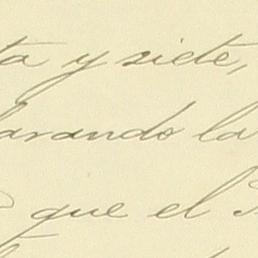 ta y siete,
arando la
que el